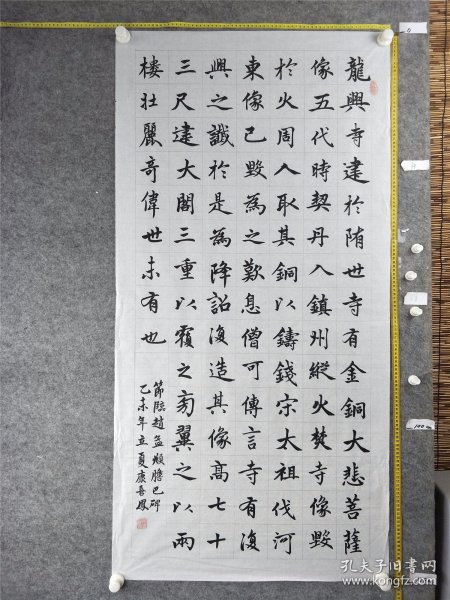 龍興寺建於隋世寺有金銅大悲菩薩
像五代時契丹入鎮州縱火焚寺像毀
於火周人取其銅以鑄錢宋太祖伐河
東像已毀為之歎息僧可傳言寺有復
興之讖於是為降詔復造其像高七十
三尺建大閣三重以覆之旁翼之以兩
樓壯麗奇偉世未有也
節臨趙孟頫膽巴碑
乙未年立夏康喜鳳
孔夫子旧书网
kongfz.com